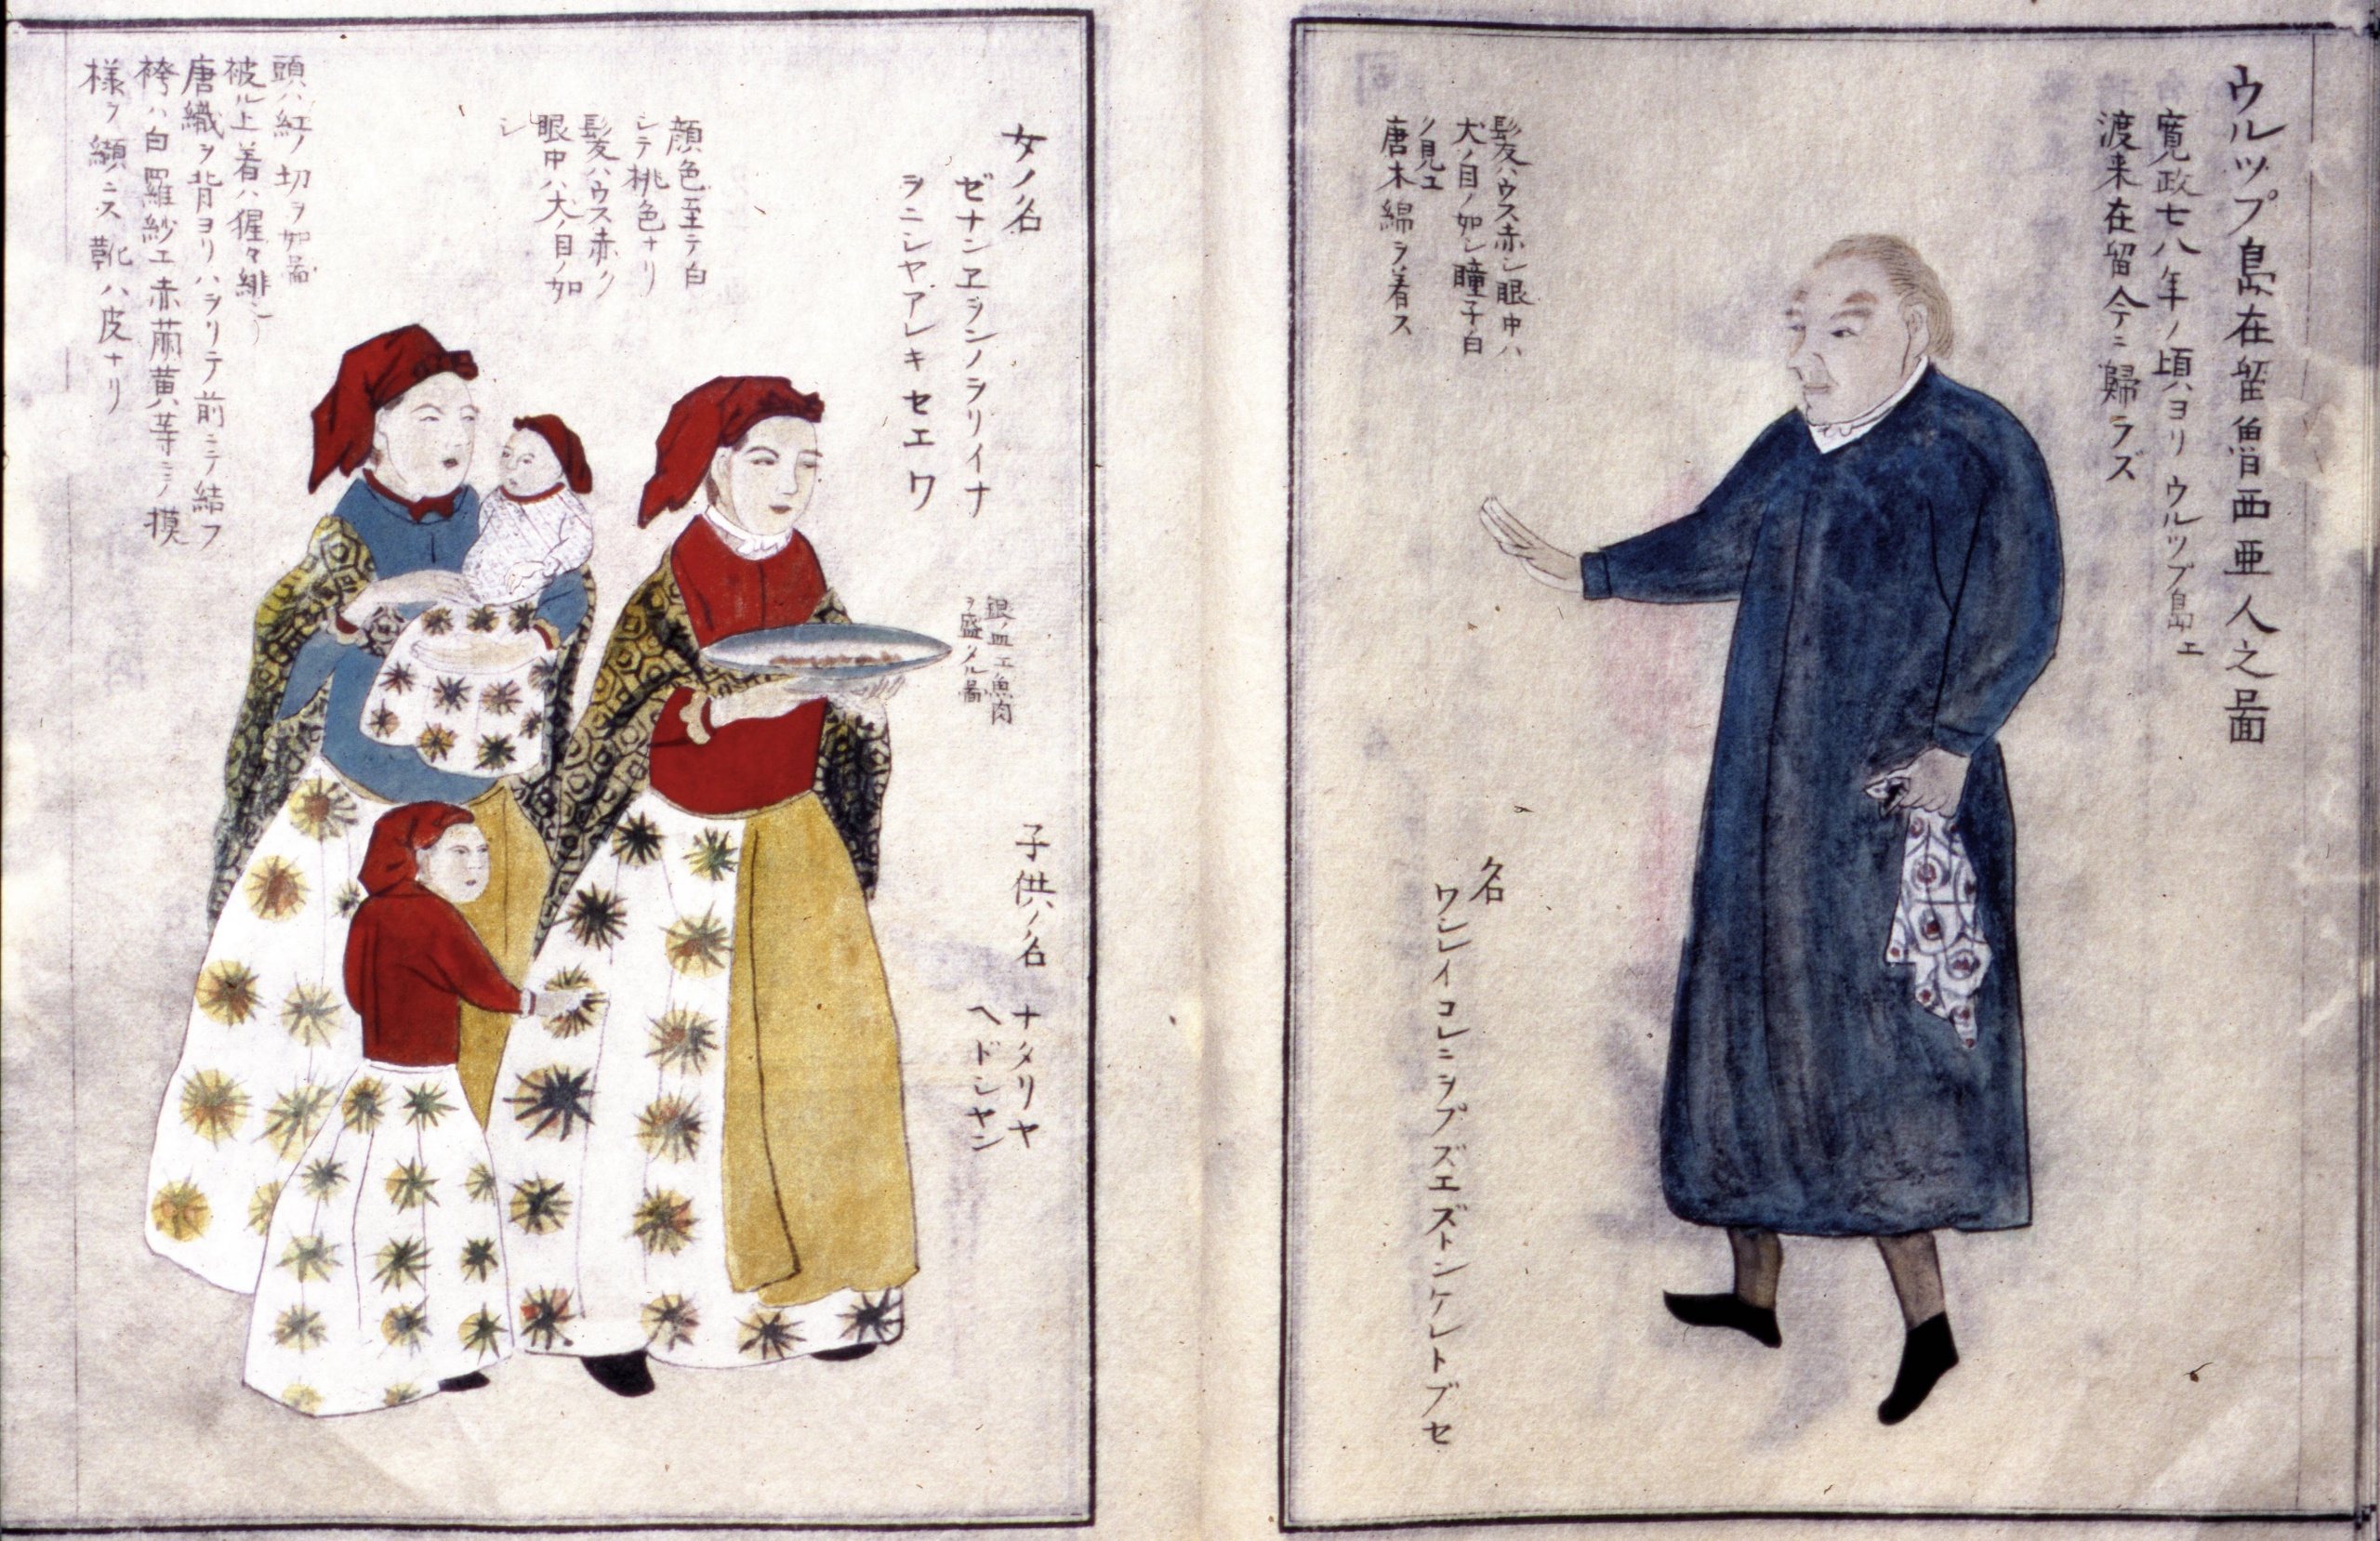 ウルップ島在留魯西亜人之啚
寛政七八年ノ頃ヨリウルップ島エ
渡来在留今ニ歸ラズ
髪ハウス赤シ眼中ハ
犬ノ目ノ如シ瞳子白
ク見エ
唐木綿ヲ着ス
名
ワシレイコレニヲプズエズトンケレトプセ
女ノ名
ゼナンヱヲシノヲリイナ
ヲニシヤアレキセエワ
銀ノ皿エ魚肉
ヲ盛タル啚
子供ノ名
ナタリヤ
ヘドシヤン
顔色至テ白
シテ桃色ナリ
髪ハウス赤ク
眼中ハ犬ノ目ノ如
シ
頭ハ紅ノ切ヲ如啚
被ル上着ハ猩々緋
唐織ヲ背ヨリハヲリテ前ニテ結フ
袴ハ白羅紗エ赤萠黄等ニテ摸
様ヲ纈ニス靴ハ皮ナリ